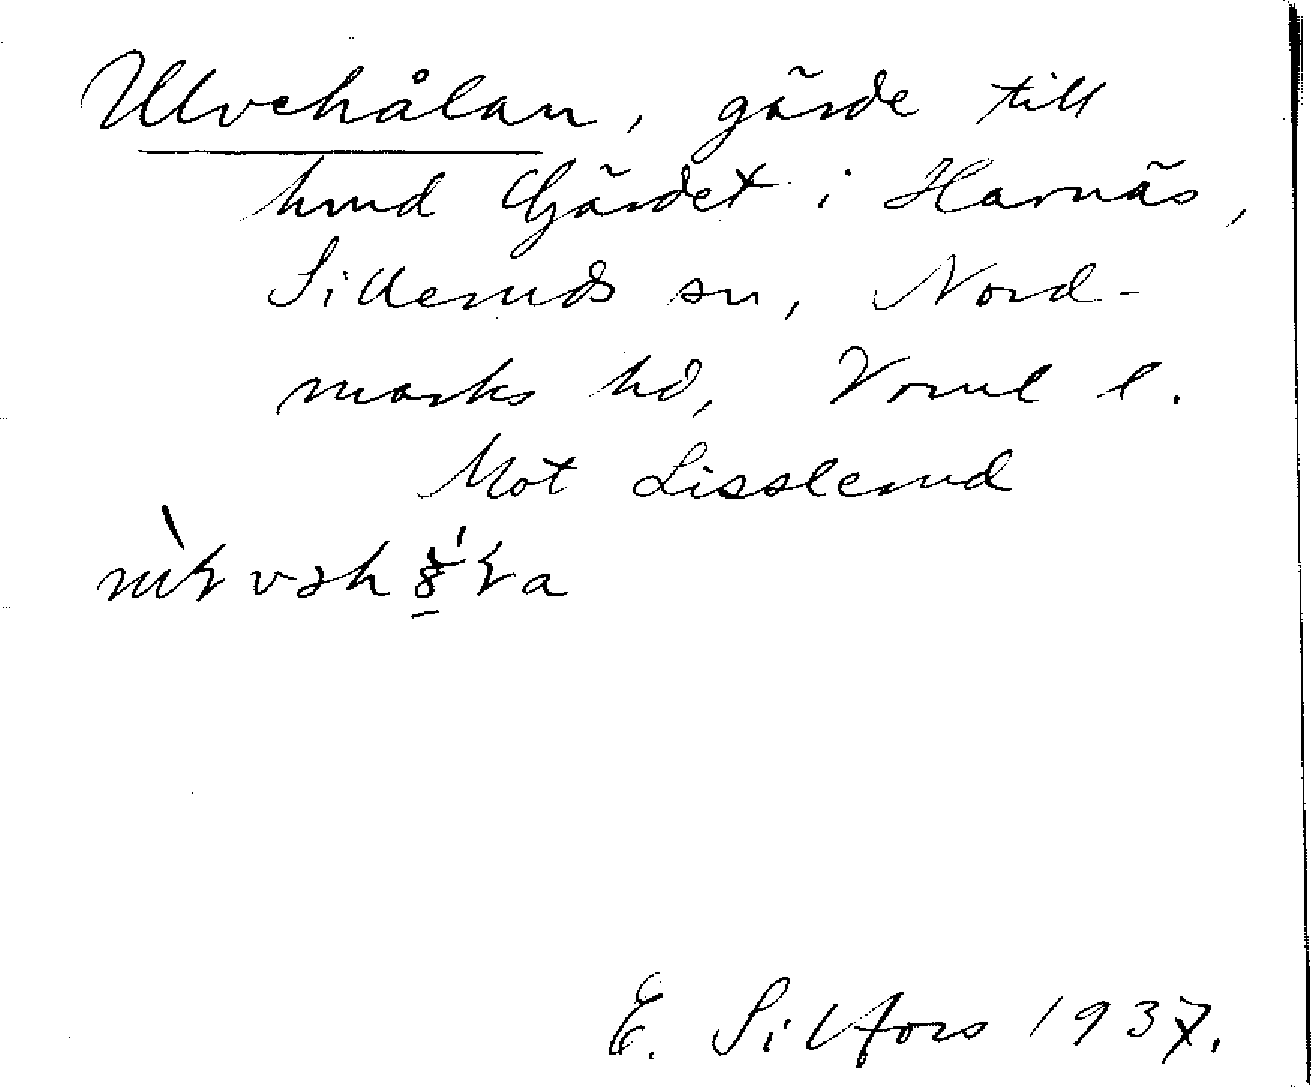 Ulvehålan, gärde till
hmd Gärdet i Harnäs,
Silleruds sn, Nord-
marks hd, Verml l.
Mot Lisslerud
E. Silfors 1937.